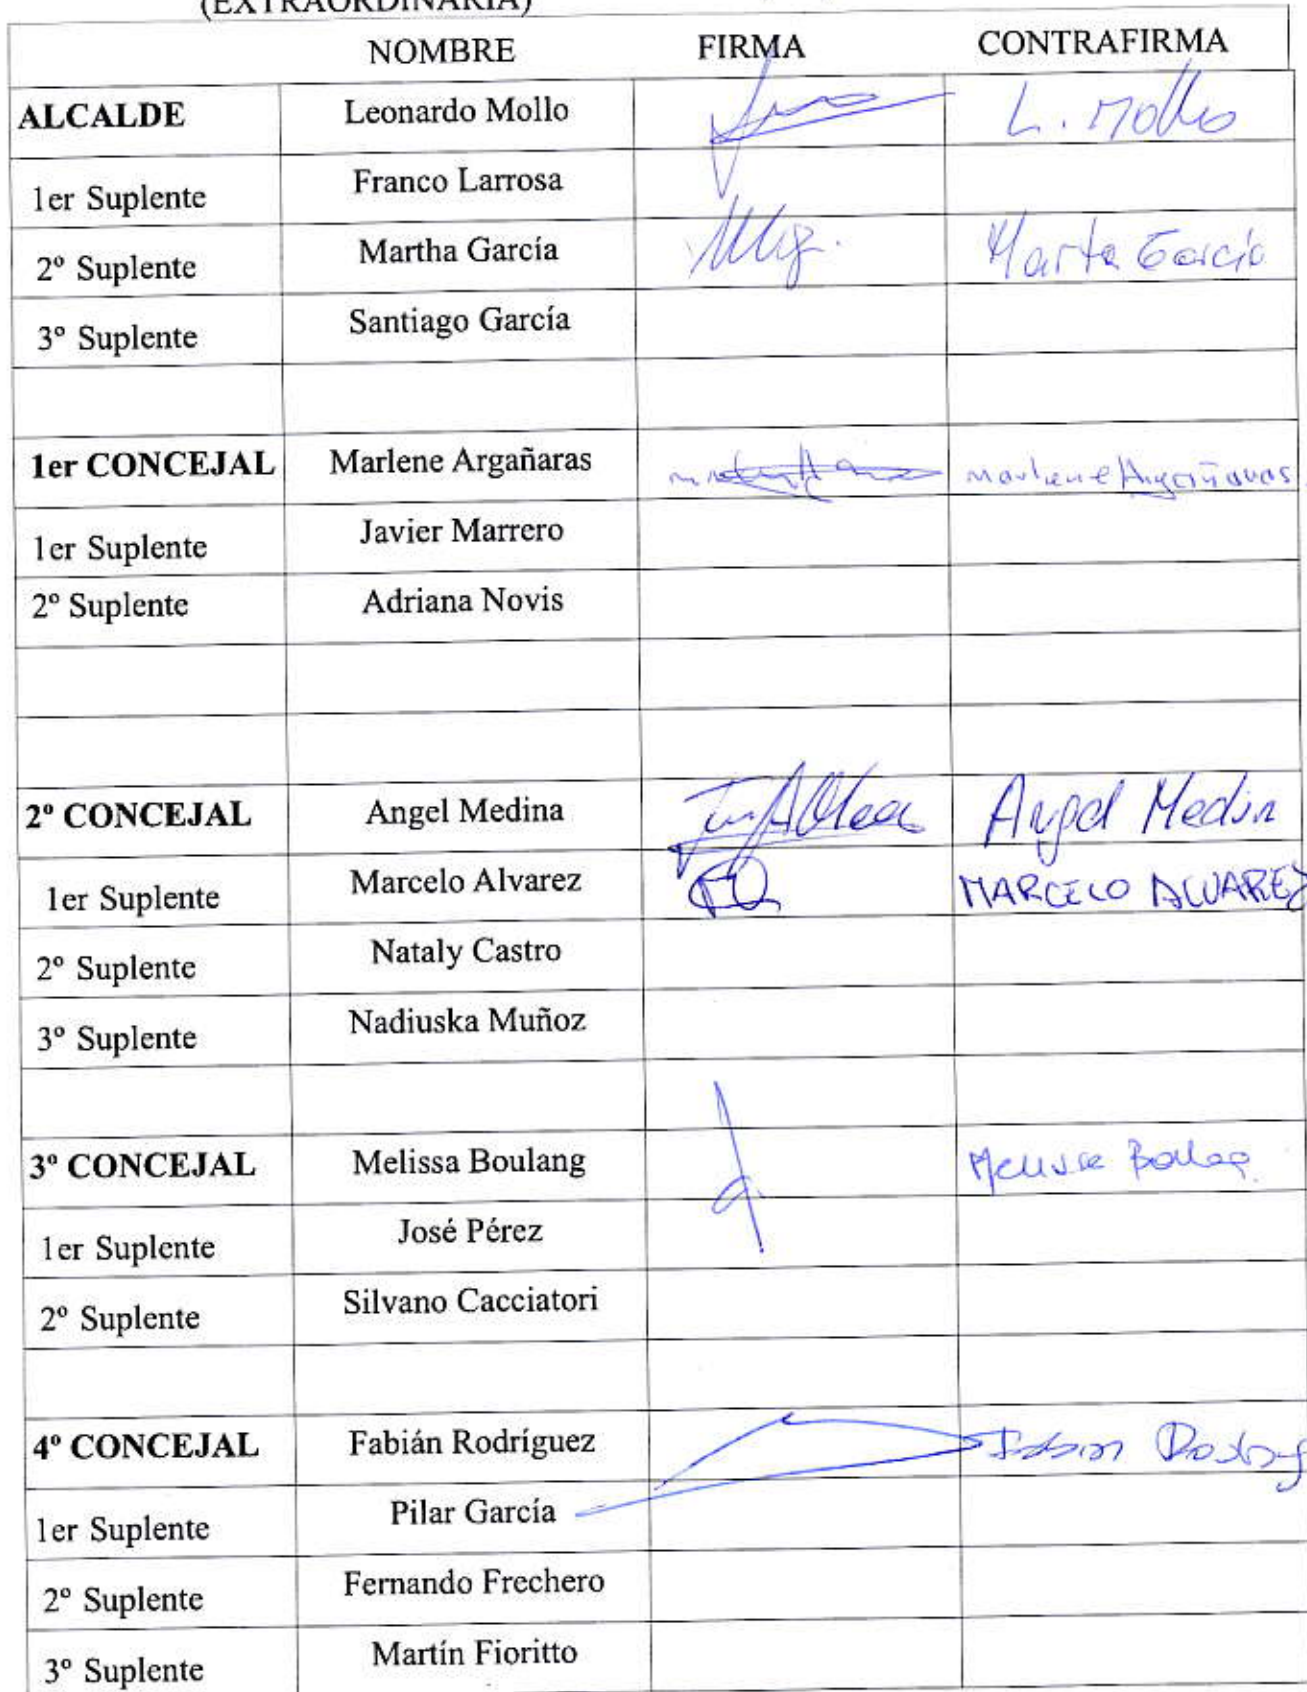 (EXTRAORDINARIA)
NOMBRE FIRMA CONTRAFIRMA
ALCALDE Leonardo Mollo L. Mollo
1er Suplente Franco Larrosa
2º Suplente Martha García Marta García
3º Suplente Santiago García
1er CONCEJAL Marlene Argañaras Marlene Argañaras
1er Suplente Javier Marrero
2º Suplente Adriana Novis
2º CONCEJAL Angel Medina Angel Medin
1er Suplente Marcelo Alvarez MARCELO ALVAREZ
2º Suplente Nataly Castro
3º Suplente Nadiuska Muñoz
3º CONCEJAL Melissa Boulang
1er Suplente José Pérez
2º Suplente Silvano Cacciatori
4º CONCEJAL Fabián Rodríguez Fabian
1er Suplente Pilar García
2º Suplente Fernando Frechero
3º Suplente Martín Fioritto